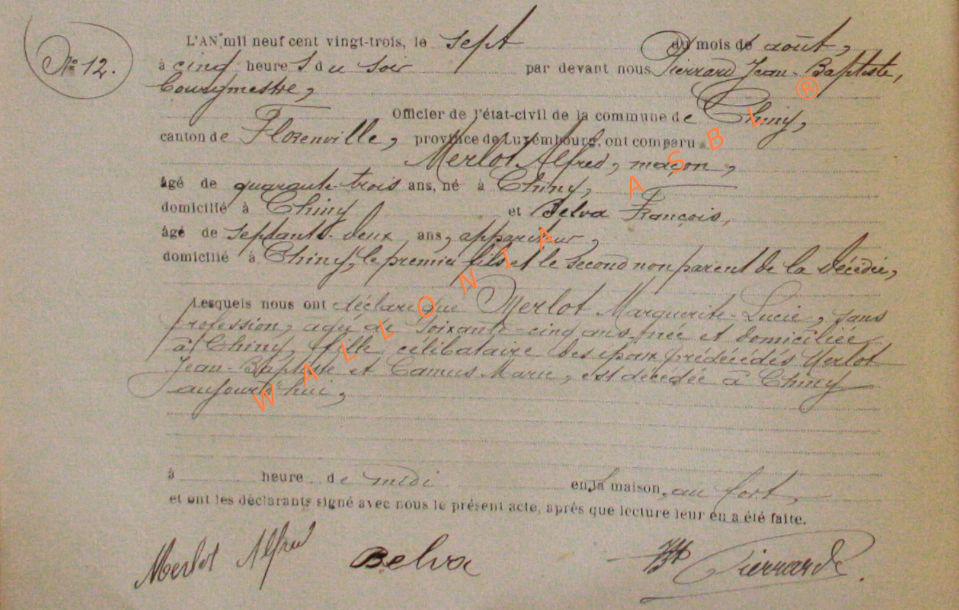 N° 12.
L'AN mil neuf cent vingt-trois, le sept du mois de août,
à cinq heures du soir par devant nous Pierrard Jean-Baptiste,
bourgmestre,
Officier de l'état-civil de la commune de Chiny,
canton de Florenville, province de Luxembourg, ont comparu
Merlot Alfred, maçon,
âgé de quarante-trois ans, né à Chiny,
domicilié à Chiny et Belva François,
âgé de septante-deux ans, appariteur,
domicilié à Chiny, le premier fils et le second non parent de la décédée,
Lesquels nous ont déclaré que Merlot Marguerite-Lucie, sans
profession, agée de soixante-cinq ans, née et domiciliée
à Chiny, fille célibataire des époux prédécédés Merlot
Jean-Baptiste et Camus Marie, est décédée à Chiny
aujourd'hui,
à heure de midi en la maison, au fort,
et ont les déclarants signé avec nous le présent acte, après que lecture leur en a été faite.
Merlot Alfred Belva JB Pierrard
WALLONIA ASBL ®